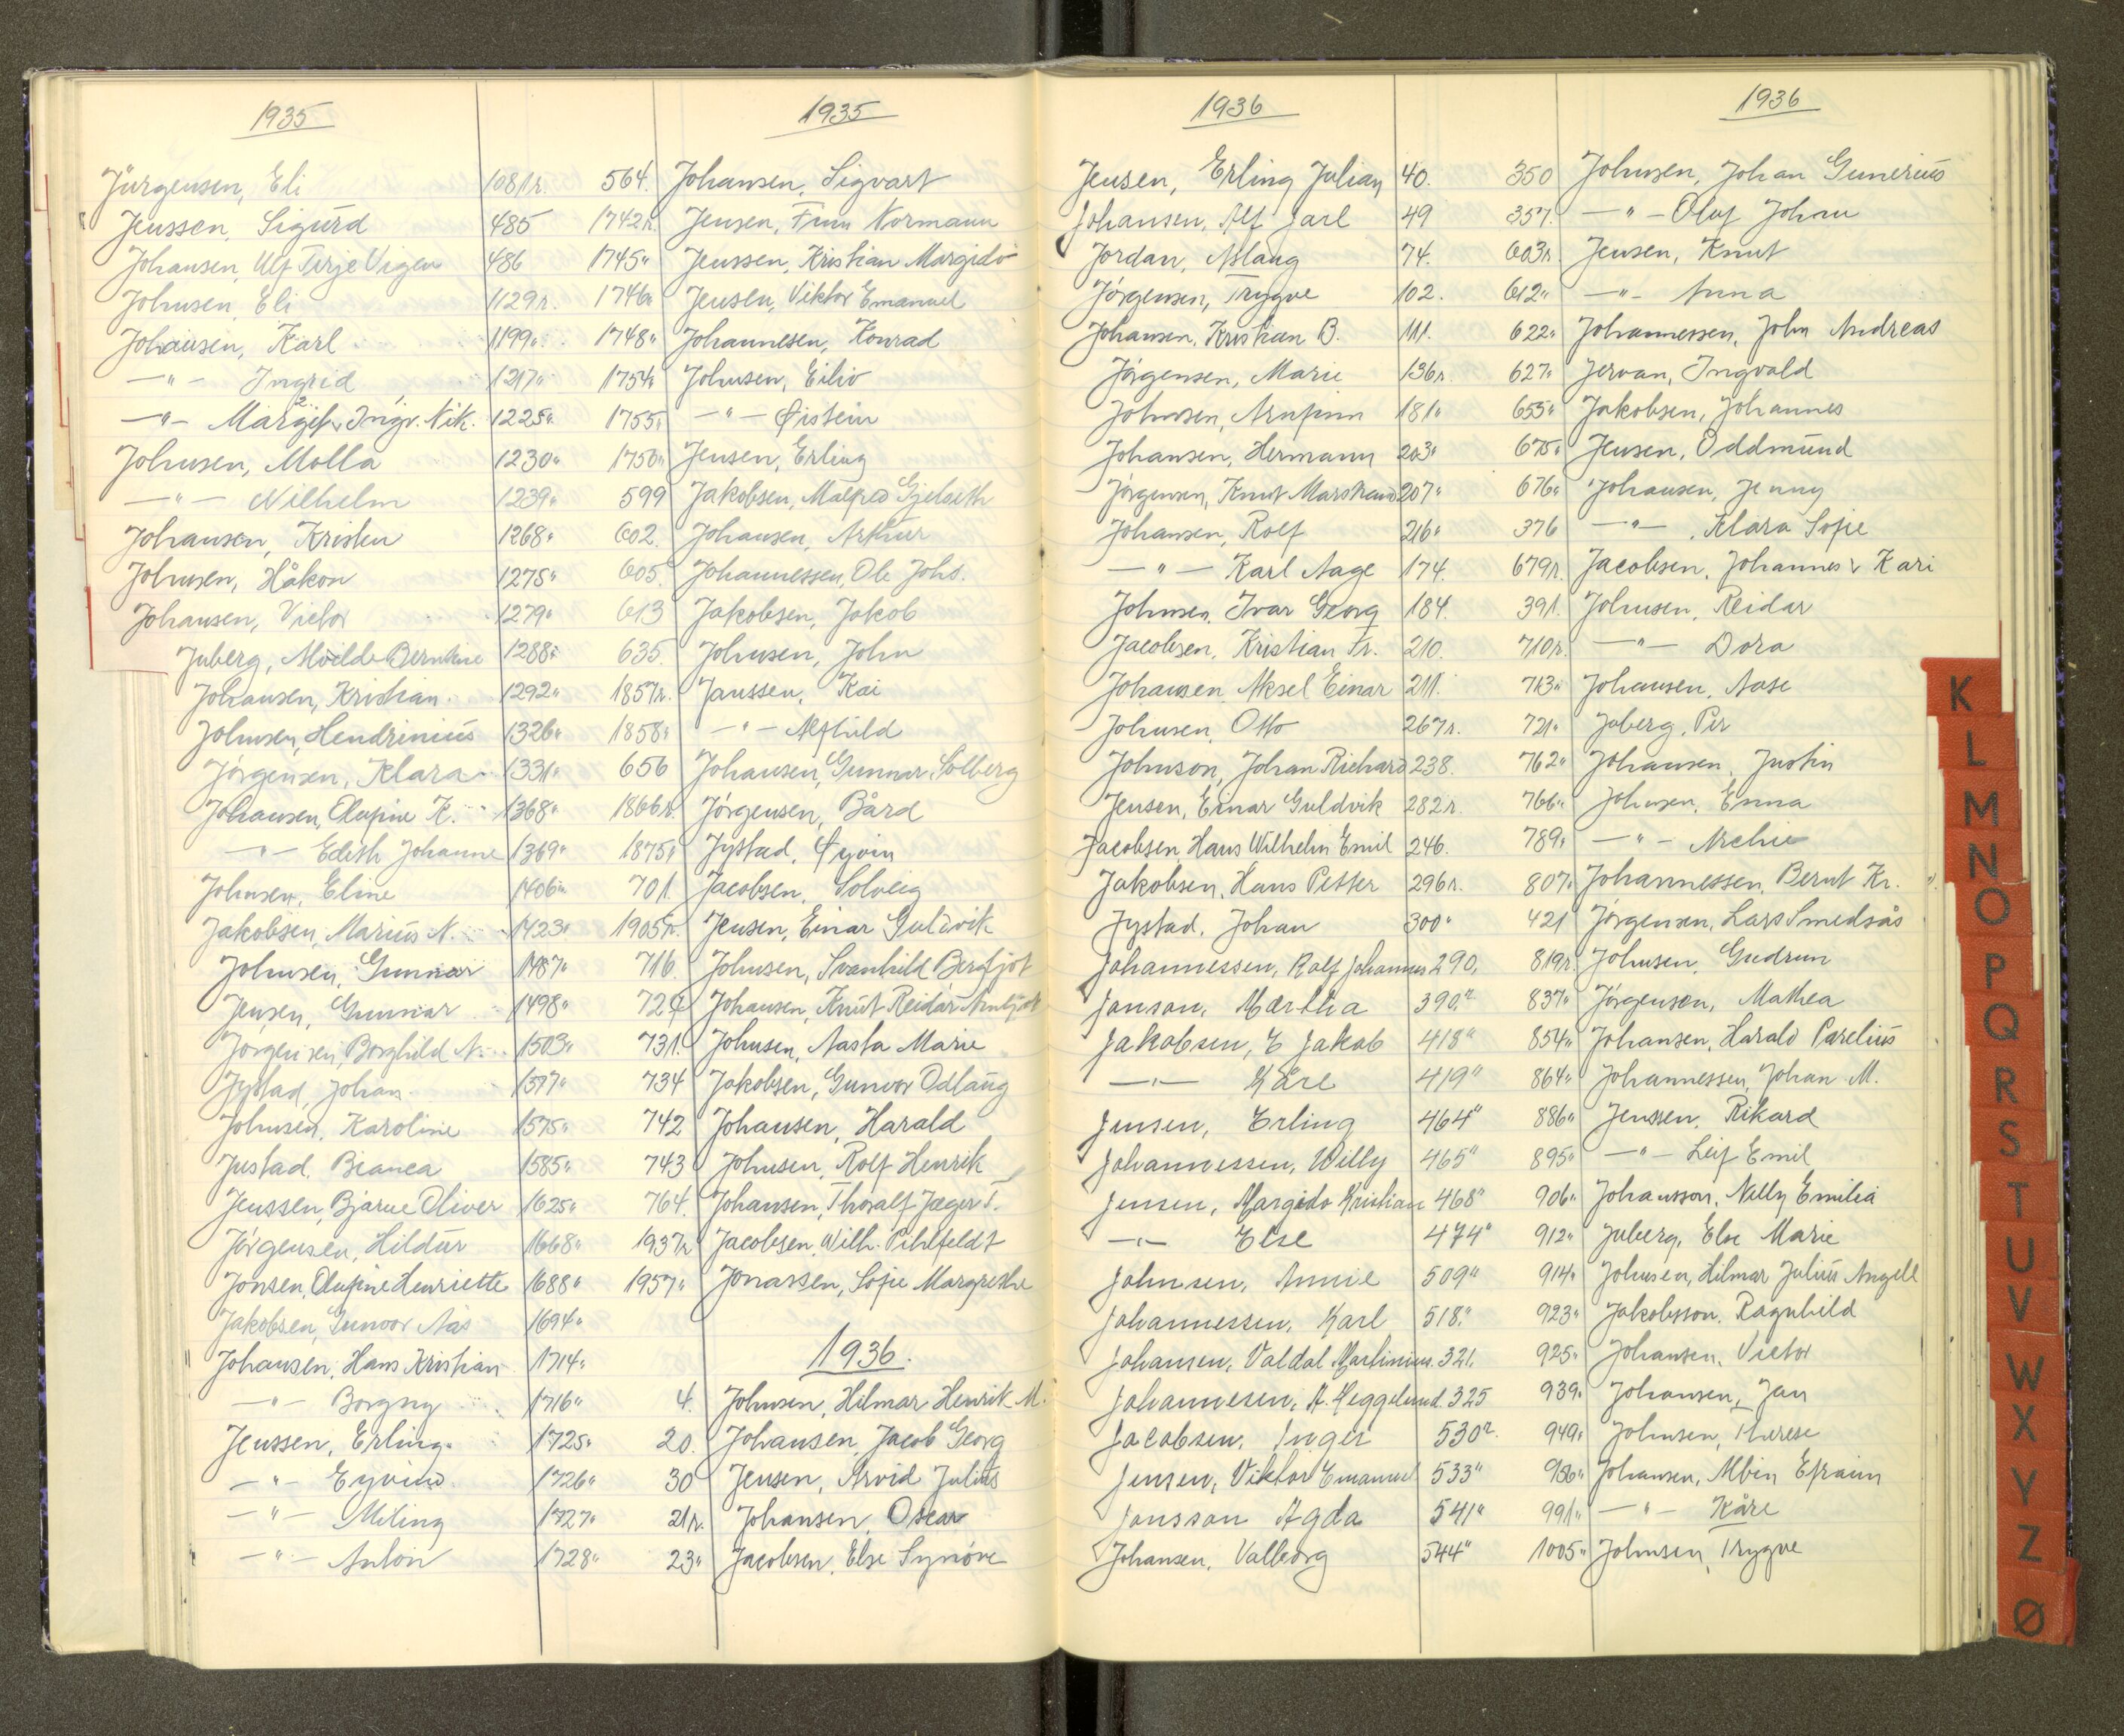 1935
Jürgensen, Eli 1081r.
Jenssen, Sigurd 485
Johansen, Ulf Terje Vigen 486
Johnsen, Eli 1129r.
Johansen, Karl 1199"
—"— Ingrid 1217"
—"— Margit & Ingv. Nik. 1225"
Johnsen, Molla 1230"
—"— Wilhelm 1239"
Johansen, Kristen 1268"
Johnsen, Håkon 1275"
Johansen, Victor 1279"
Juberg, Molde Berntine 1288"
Johansen, Kristian 1292"
Johnsen, Hendrinius 1326"
Jörgensen, Klara 1331"
Johansen, Olufine K. 1368"
—"— Edith Johanne 1369"
Johnsen, Eline 1406"
Jakobsen, Marius N. 1423"
Johnsen, Gunnar 1487"
Jensen, Gunnar 1498"
Jörgensen, Borghild N. 1503"
Jystad, Johan 1517"
Johnsen, Karoline 1575"
Justad, Bianca 1585"
Jenssen, Bjarne Oliver 1625"
Jörgensen, Hildur 1668"
Jonsen, Olufine Henriette 1688"
Jakobsen, Gunvor Aas 1694"
Johansen, Hans Kristian 1714"
—"— Borgny 1716"
Jenssen, Erling 1725"
—"— Eyvind 1726"
—"— Miling 1727"
—"— Anton 1728"
1935
564. Johansen, Sigvart
1742r. Jensen, Finn Normann
1745" Jenssen, Kristian Margido
1746" Jensen, Viktor Emanuel
1748" Johannesen, Konrad
1754" Johnsen, Eiliv
1755" —"— Øistein
1756" Jensen, Erling
599 Jakobsen, Malfred Gjelseth
602. Johansen, Arthur
605. Johannessen, Ole Johs.
613 Jakobsen, Jakob
635. Johnsen, John
1857r. Janssen, Kai
1858" —"— Alfhild
656 Johansen, Gunnar Solberg
1866r. Jörgensen, Bård
1875" Jystad, Øyvin
701. Jacobsen, Solveig
1905r. Jensen, Einar Guldvik
716. Johnsen, Svanhild Bergljot
727 Johansen, Knut Reidar
731. Johnsen, Aasta Marie
734 Jakobsen, Gunvor Odlaug
742 Johansen, Harald
743 Johnsen, Rolf Henrik
764. Johansen, Thoralf Jæger T.
1937r Jacobsen, Wilh. Pihlfeldt
1957" Jonassen, Sofie Margrethe
1936.
4. Johnsen, Hilmar Henrik M.
20. Johansen, Jacob Georg
30 Jensen, Arvid Julius
21r. Johansen, Oscar
23" Jacobsen, Else Synöve
1936
Jensen, Erling Julian 40.
Johansen, Alf Jarl 49
Jordan, Aslaug 74.
Jörgensen, Trygve 102.
Johansen, Kristian B. 111.
Jörgensen, Marie 136r.
Johnsen, Arnfinn 181"
Johansen, Hermann 203"
Jörgensen, Knut Marstrand 207"
Johansen, Rolf 216"
—"— Karl Aage 174.
Johnsen, Ivar Georg 184.
Jacobsen, Kristian Fr. 210.
Johansen, Aksel Einar 211.
Johnsen, Otto 267r.
Johnson, Johan Richard 238.
Jensen, Einar Guldvik 282r.
Jacobsen, Hans Wilhelm Emil 246.
Jakobsen, Hans Petter 296r.
Jystad, Johan 300"
Johannessen, Rolf Johannes 290.
Janson, Martha 390r
Jakobsen, E Jakob 418"
—"— Kåre 419"
Jensen, Erling 464"
Johannessen, Willy 465"
Jensen, Margido Kristian 468"
—"— Else 474"
Johnsen, Annie 509"
Johannessen, Karl 518"
Johansen, Valdal Martinius. 321.
Johannesen, A. Heggelund. 325
Jacobsen, Inger 530r.
Jensen, Viktor Emanuel 533"
Jonsson Agda 541"
Johansen, Valborg 544"
1936
350 Johnsen, Johan Gunerius
357. —"— Oluf Johan
603r. Jensen, Knut
612" —"— Anna
622" Johannessen, John Andreas
627" Jervan, Ingvald
655" Jakobsen, Johannes
675" Jensen, Oddmund
676" Johansen, Jenny
376 —"— Klara Sofie
679r. Jacobsen, Johannes & Kari
391. Johnsen, Reidar
710r. —"— Dora
713" Johansen, Aase
721" Juberg, Per
762" Johansen, Justin
766" Johnsen, Emma
789" —"— Archie
807" Johannessen, Bernt Kr.
421 Jörgensen, Lars Smedsås
819r Johnsen, Gudrun
837" Jörgensen, Mathea
854" Johansen, Harald Parelius
864" Johannessen, Johan M.
886" Jenssen, Rikard
895" —"— Leif Emil
906" Johansson, Nelly Emilia
912" Juberg, Else Marie
914" Johnsen, Hilmar Julius Angell
923" Jakobsson, Ragnhild
925" Johansen, Victor
939" Johansen, Jan
949" Johnsen, Therese
986" Johansen, Albin Efraim
991" —"— Kåre
1005" Johnsen, Trygve
K
L
M
N
O
P
Q
R
S
T
U
V
W
X
Y
Z
Ø